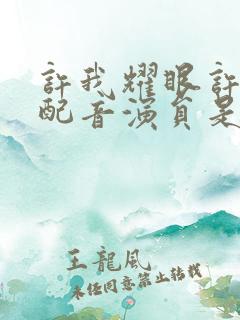 許我耀眼許
配音演員是
王龍風
未經同意禁止轉載